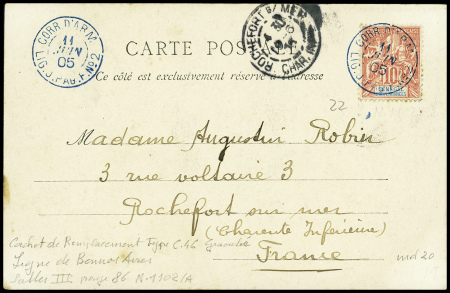 CORR. D'ARM.
11
JUIN
05
LIG. J. PAQ. F. Nº2
ROCHEFORT S/ MER
CHAR. INF.
CORR. D'ARM.
11
JUIN
05
CARTE POSTALE
Ce côté est exclusivement réservé à l'adresse
10
22
Madame Augustin Robin
3 rue voltaire 3
Rochefort sur mer
(Charente Inférieure)
France
Cachet de Remplacement Type C46
Ligne de Buenos Aires
Salles III page 86 N. 1102/A